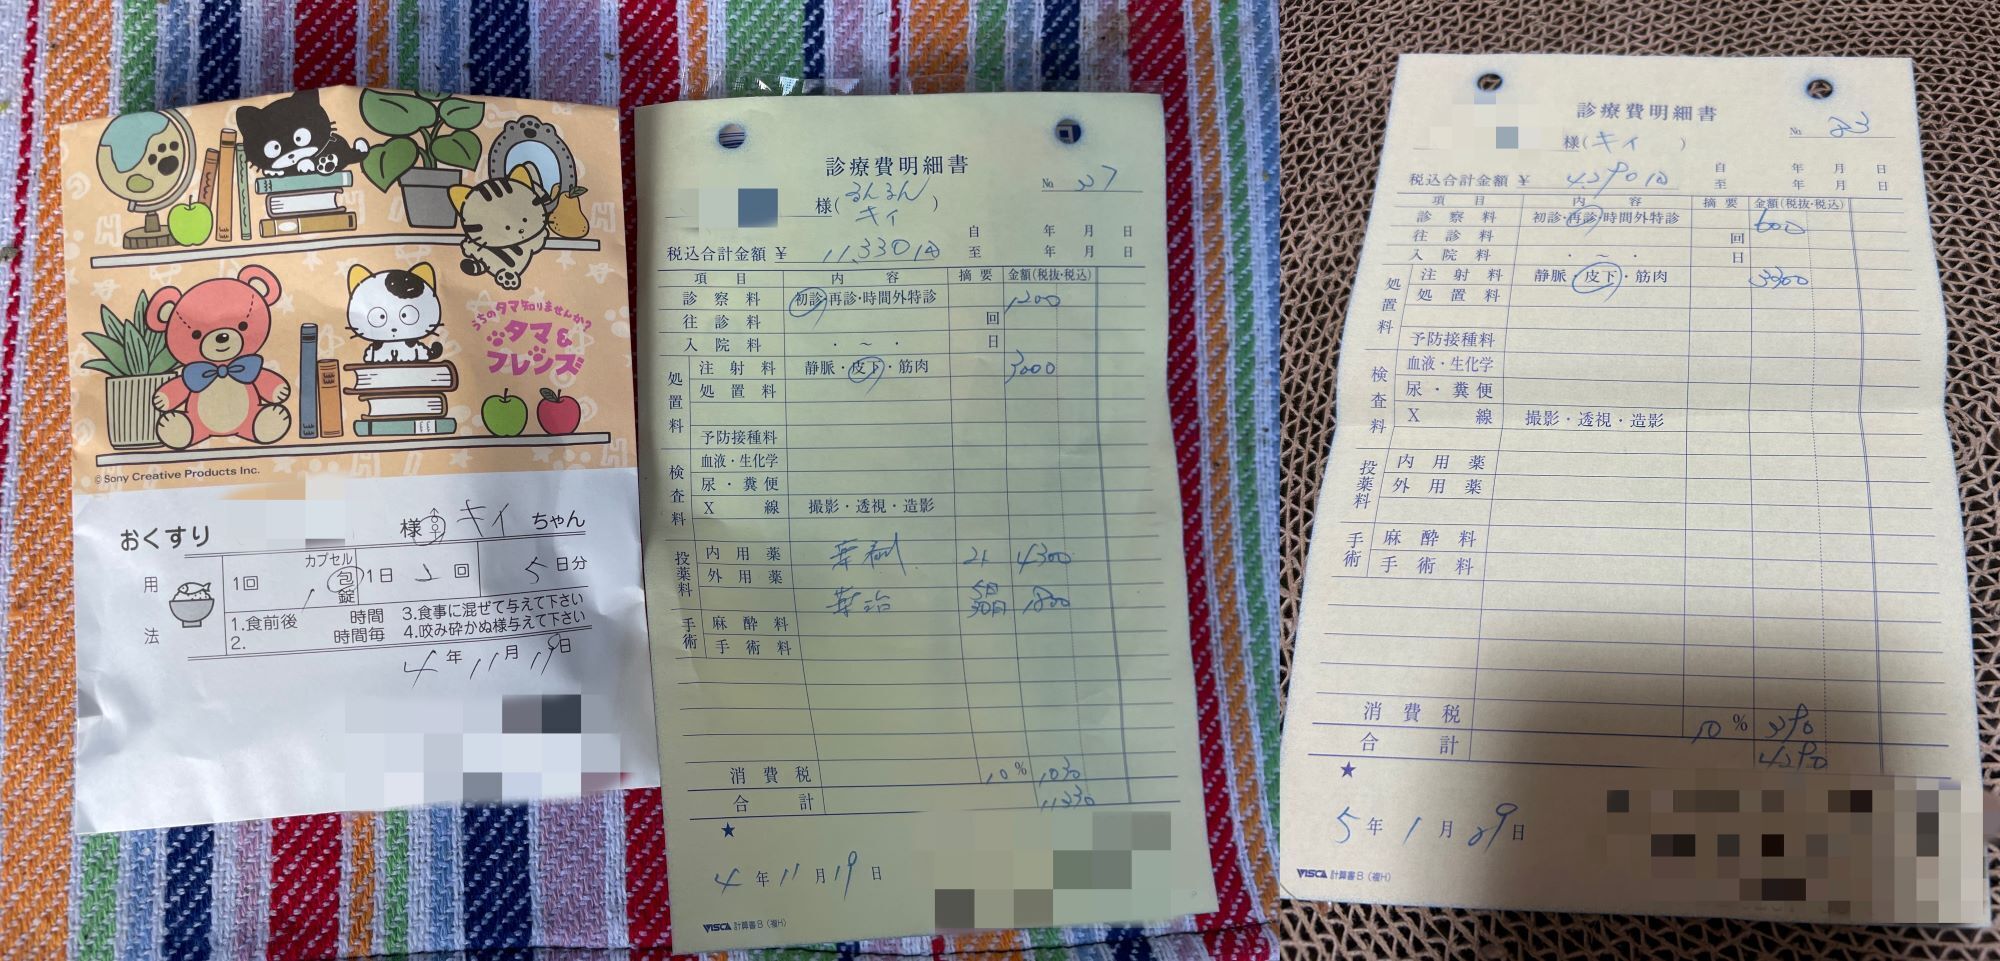 うちのタマ知りませんか?
タマ&
フレンズ
© Sony Creative Products Inc.
おくすり 様 キィ ちゃん
用法
1回 1 カプセル 包 錠 1日 2 回 5 日分
1.食前後 時間 3.食事に混ぜて与えて下さい
2. 時間毎 4.咬み砕かぬ様与えて下さい
4 年 11 月 19 日
診療費明細書
様( るんるん キィ ) No. 27
税込合計金額 ¥ 11,330 自 年 月 日
至 年 月 日
項目 内容 摘要 金額(税抜・税込)
診察料 初診・再診・時間外特診 1,200
往診料 回
入院料 ・ ~ ・ 日
処置料
注射料 静脈・皮下・筋肉 3000
処置料
予防接種料
検査料
血液・生化学
尿・糞便
X線 撮影・透視・造影
投薬料
内用薬 4300
外用薬
5日 30日 1800
手術
麻酔料
手術料
消費税 10 % 1030
合計 11330
★
4 年 11 月 19 日
VISCA 計算書B(複H)
診療費明細書
様( キィ ) No. 23
税込合計金額 ¥ 4,290 自 年 月 日
至 年 月 日
項目 内容 摘要 金額(税抜・税込)
診察料 初診・再診・時間外特診 600
往診料 回
入院料 ・ ~ ・ 日
処置料
注射料 静脈・皮下・筋肉 3300
処置料
予防接種料
検査料
血液・生化学
尿・糞便
X線 撮影・透視・造影
投薬料
内用薬
外用薬
手術
麻酔料
手術料
消費税 10 % 390
合計 4290
★
5 年 1 月 29 日
VISCA 計算書B(複H)